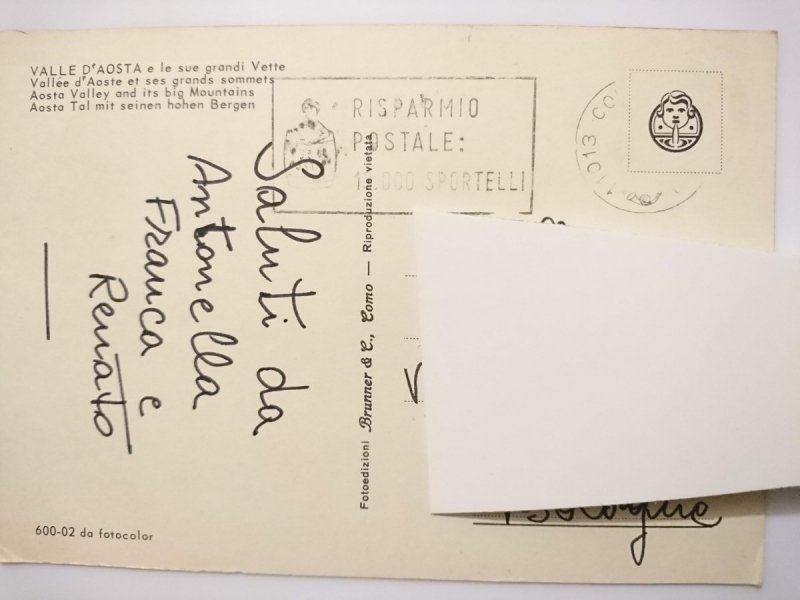 VALLE D'AOSTA e le sue grandi Vette
Vallée d'Aoste et ses grands sommets
Aosta Valley and its big Mountains
Aosta Tal mit seinen hohen Bergen
RISPARMIO
POSTALE:
SPORTELLI
11013 CO
Saluti da
Antonella
Franca e
Renato
Fotoedizioni Brunner & C., Como — Riproduzione vietata
600-02 da fotocolor